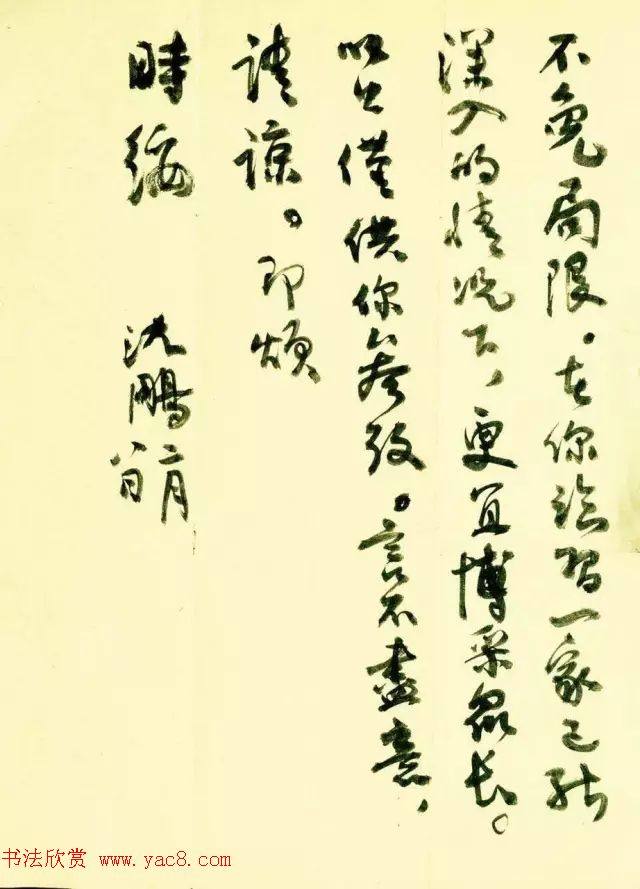 不免局限。在你临习一家已能
深入的情况下，更宜博采众长。
以上仅供你参考。言不尽意，
请谅。即颂
時绥
沈鹏
二月
八日
书法欣赏 www.yac8.com